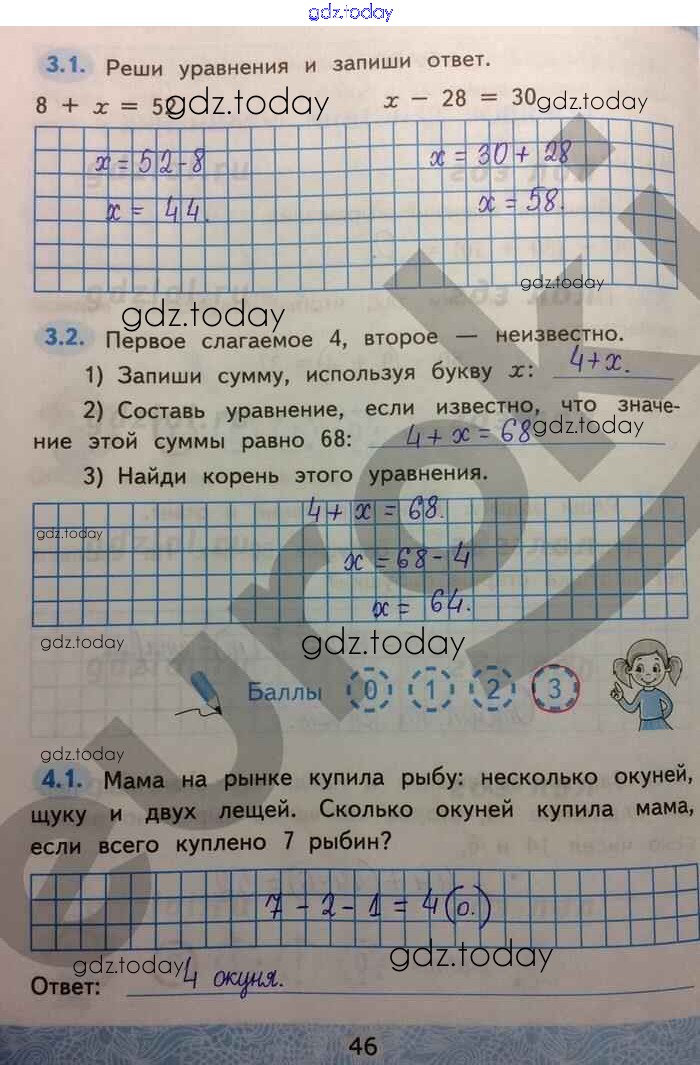 gdz.today
3.1. Реши уравнения и запиши ответ.
8 + x = 52 gdz.today x − 28 = 30 gdz.today
x = 52-8 x = 30 + 28
x = 44. x = 58.
gdz.today
gdz.today
3.2. Первое слагаемое 4, второе — неизвестно.
1) Запиши сумму, используя букву x: 4+x.
2) Составь уравнение, если известно, что значе-
ние этой суммы равно 68: 4 + x = 68 gdz.today
3) Найди корень этого уравнения.
4 + x = 68.
gdz.today
x = 68 - 4
x = 64.
gdz.today gdz.today
Баллы 0 1 2 3
gdz.today
4.1. Мама на рынке купила рыбу: несколько окуней,
щуку и двух лещей. Сколько окуней купила мама,
если всего куплено 7 рыбин?
7 - 2 - 1 = 4 (о.)
gdz.today gdz.today
Ответ: 4 окуня.
46
euroki